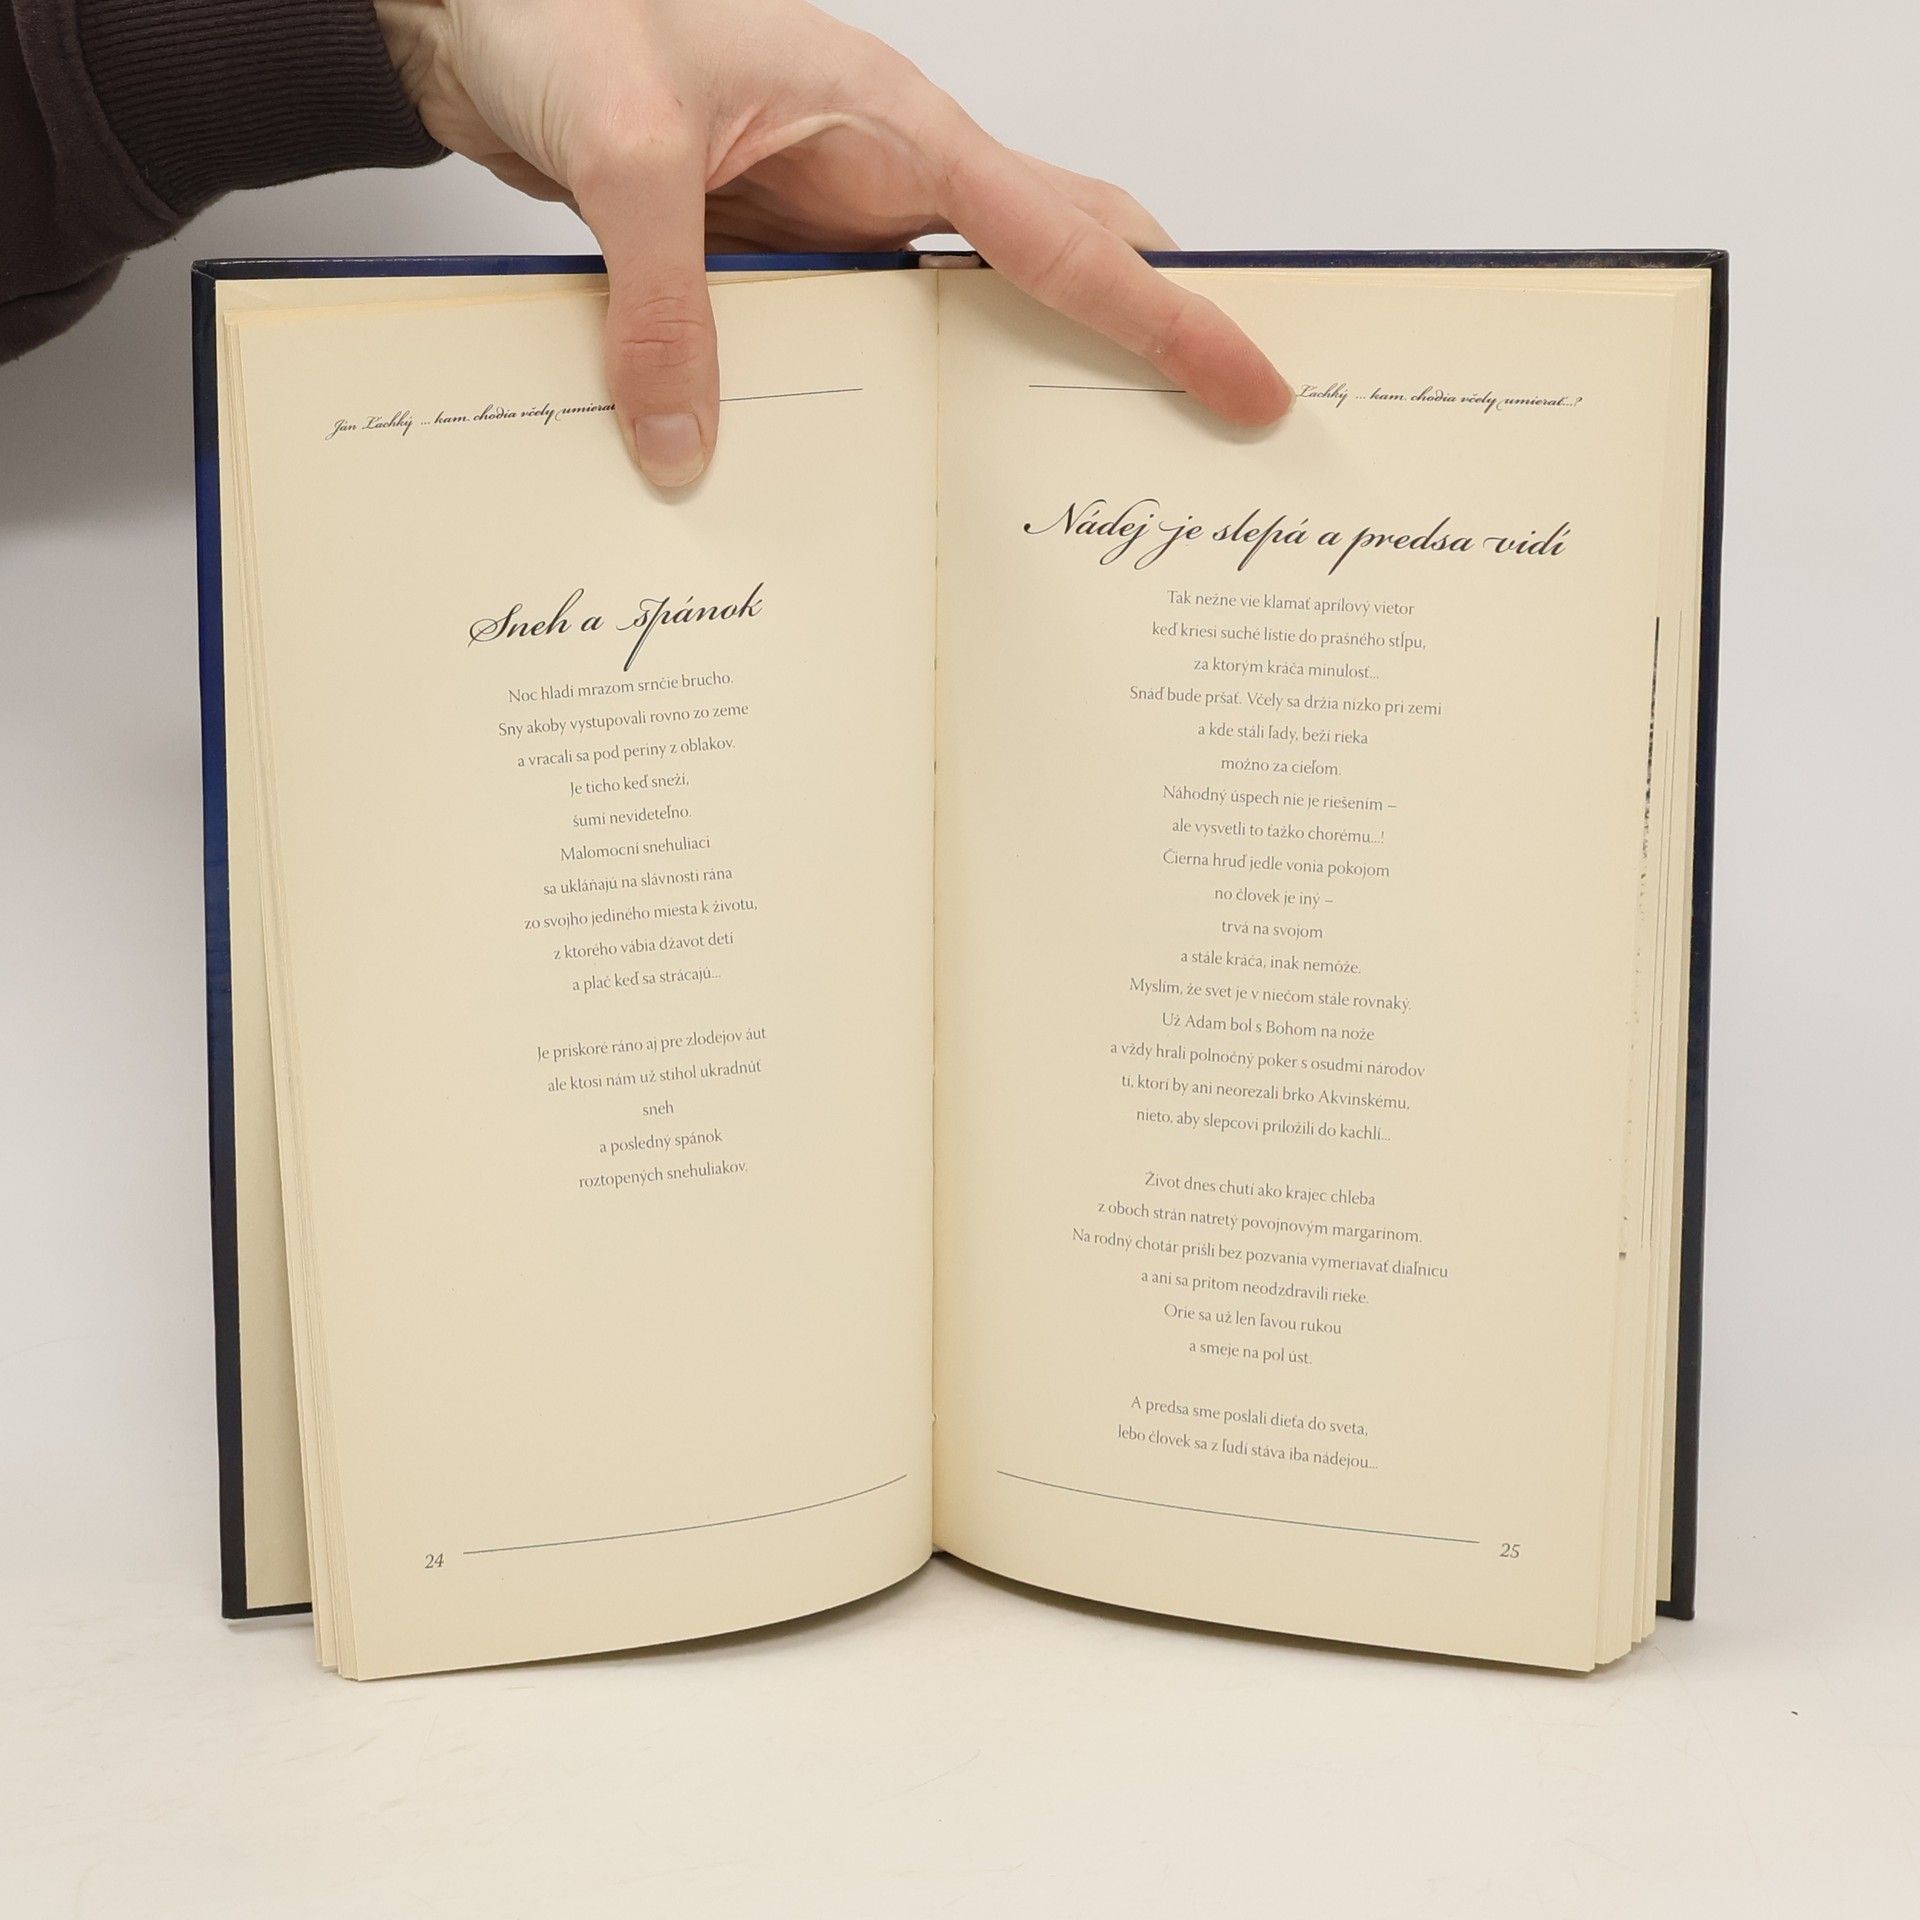 Ján Ľachký ... kam chodia včely umierať
Sneh a spánok
Noc hladí mrazom srnčie brucho.
Sny akoby vystupovali rovno zo zeme
a vracali sa pod periny z oblakov.
Je ticho keď sneží,
šumí nevideteľno.
Malomocní snehuliaci
sa ukláňajú na slávnosti rána
zo svojho jediného miesta k životu,
z ktorého vábia džavot detí
a plač keď sa strácajú...
Je priskoré ráno aj pre zlodejov áut
ale ktosi nám už stihol ukradnúť
sneh
a posledný spánok
roztopených snehuliakov.
24
Ľachký ... kam chodia včely umierať...?
Nádej je slepá a predsa vidí
Tak nežne vie klamať aprílový vietor
keď kriesi suché lístie do prašného stĺpu,
za ktorým kráča minulosť...
Snáď bude pršať. Včely sa držia nízko pri zemi
a kde stáli ľady, beží rieka
možno za cieľom.
Náhodný úspech nie je riešením –
ale vysvetli to ťažko chorému...!
Čierna hruď jedle vonia pokojom
no človek je iný –
trvá na svojom
a stále kráča, inak nemôže.
Myslím, že svet je v niečom stále rovnaký.
Už Adam bol s Bohom na nože
a vždy hrali polnočný poker s osudmi národov
tí, ktorí by ani neorezali brko Akvinskému,
nieto, aby slepcovi priložili do kachlí...
Život dnes chutí ako krajec chleba
z oboch strán natretý povojnovým margarínom.
Na rodný chotár prišli bez pozvania vymeriavať diaľnicu
a ani sa pritom neodzdravili rieke.
Orie sa už len ľavou rukou
a smeje na pol úst.
A predsa sme poslali dieťa do sveta,
lebo človek sa z ľudí stáva iba nádejou...
25